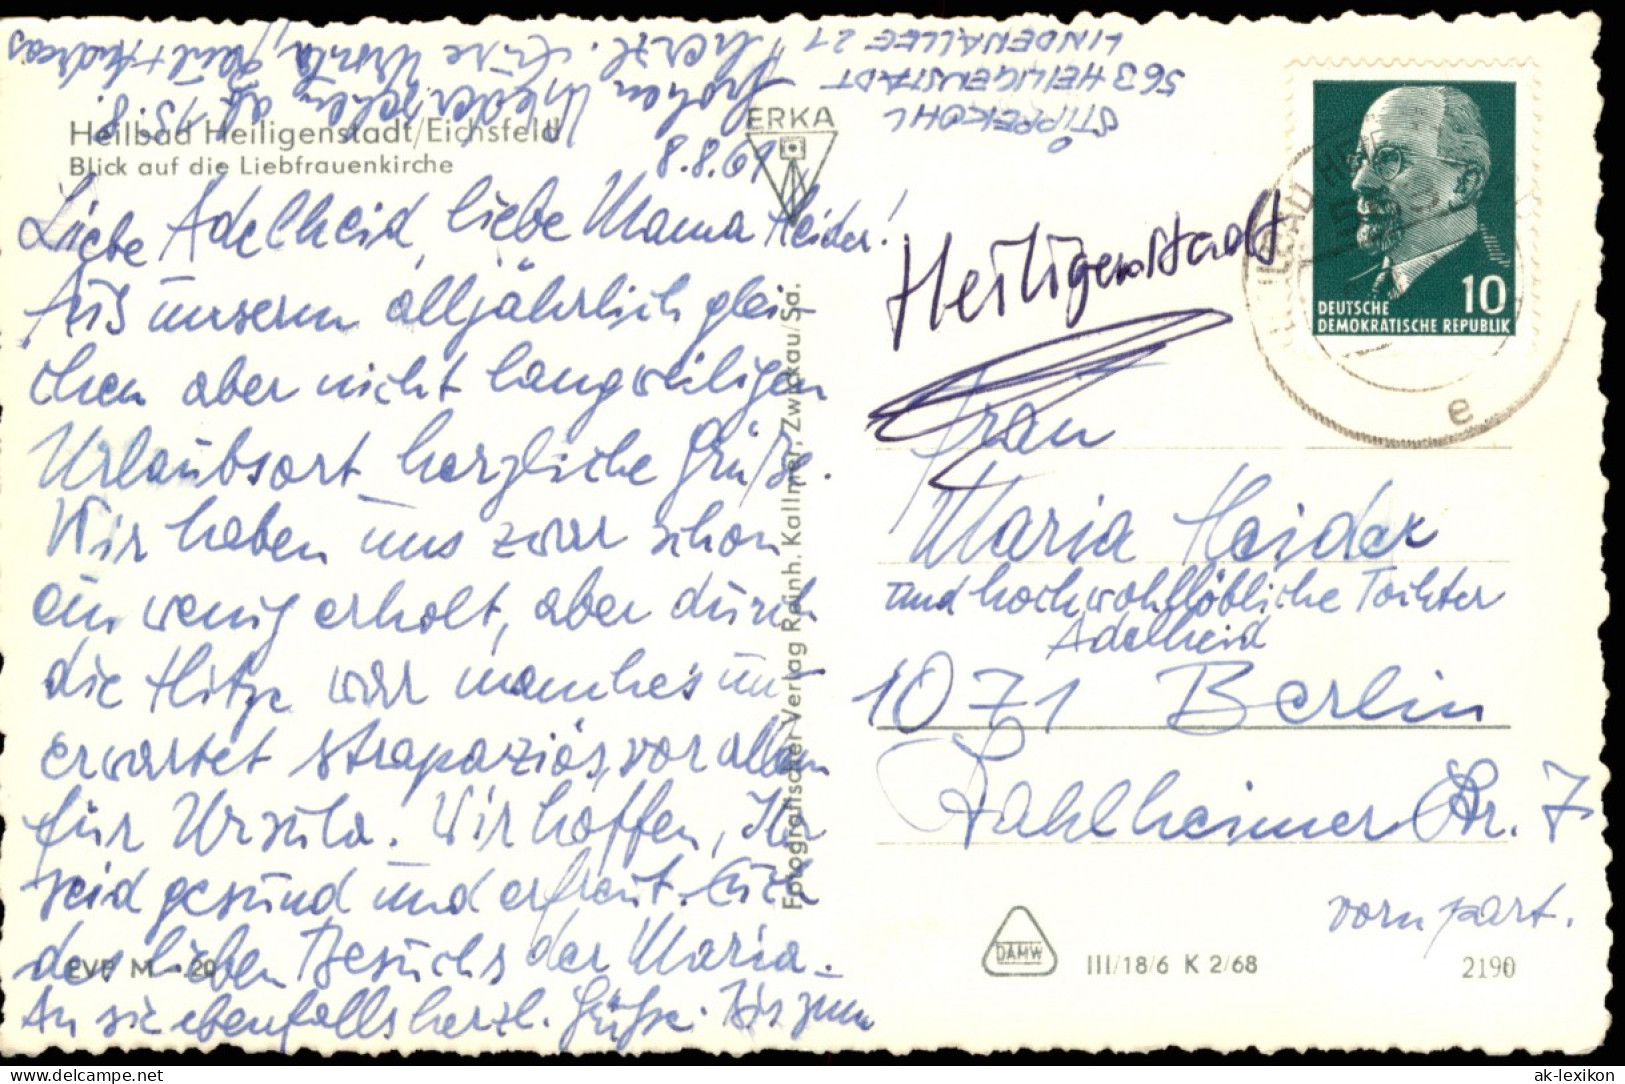 Heilbad Heiligenstadt/Eichsfeld
Blick auf die Liebfrauenkirche
ERKA
8.8.69
Liebe Adelheid, liebe Mama Heider!
Aus unserm alljährlich glei-
chen aber nicht langweiligen
Urlaubsort herzliche Grüße.
Wir haben uns zwar schon
ein wenig erholt, aber durch
die Hitze war manches un-
erwartet strapaziös, vor allem
für Ursula. Wir hoffen, Ihr
seid gesund und erfreut Euch
des lieben Besuchs der Maria.
An sie ebenfalls herzl. Grüße. Bis zum
frohen Wiedersehen ab 15.8.
herzl. Eure Ursula, Paul + Andreas
EVP M -.20
Fotografischer Verlag Reinh. Kallmer, Zwickau/Sa.
STIPPEKOHL
563 HEILIGENSTADT
LINDENALLEE 21
Heiligenstadt
10
DEUTSCHE
DEMOKRATISCHE REPUBLIK
e
Frau
Maria Heider
und hochwohllöbliche Tochter
Adelheid
1071 Berlin
Dahlheimer Str. 7
vorn part.
DAMW
III/18/6 K 2/68
2190
delcampe.net
ak-lexikon